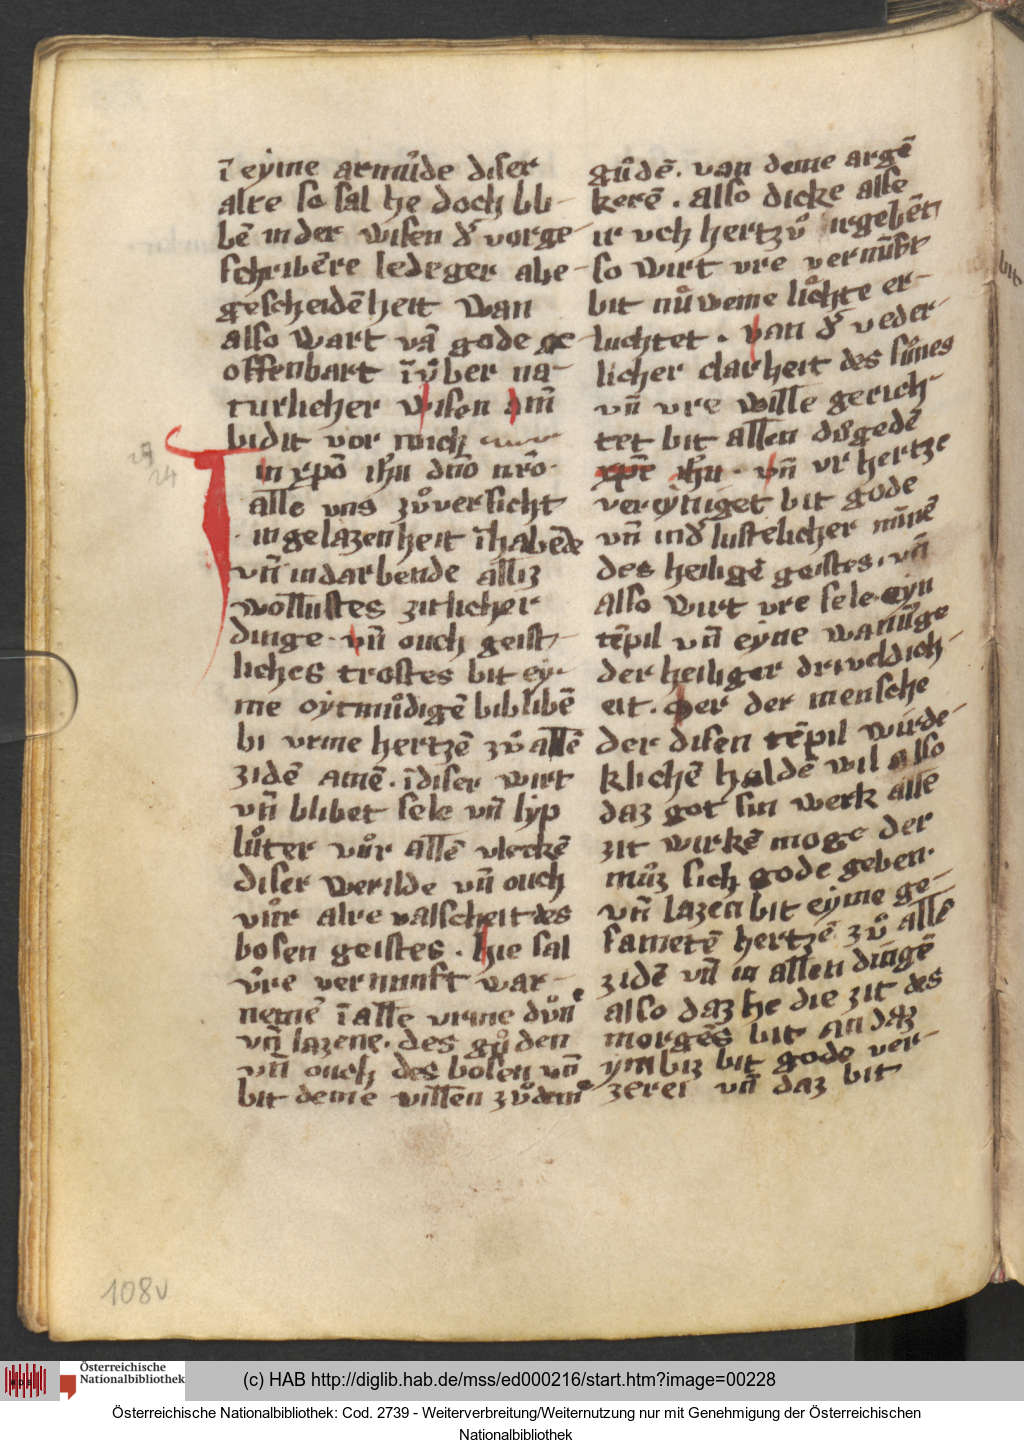 ī eyme armůde diser
alre so sal he doch bli-
bē in der wisen d' vorge-
schribēre ledeger abe-
gescheidēheit wan
also wart vā gode ge
offenbart īv̊ber na-
turlicher wisen am̄
bidit vor mich
In xp̄o ih̄u dn̄o nr̄o.
alle vns zv̊versicht
in gelazenheit īhabēde
vn̄ in darbende alliz
wollustes zitlicher
dinge. vn̄ ouch geist-
liches trostes bit ey-
me oytmůdigē biblibē
bi vrme hertzē zv̊ allē
zidē amē. īdiser wirt
vn̄ blibet sele vn̄ lyp
lůter vůr allē vleckē
diser werilde vn̄ ouch
vůr alre valscheit des
bosen geistes. Hie sal
v̊re vernunft war-
nemē ī alle vrme důn
vn̄ lazene. des gůden
vn̄ ouch des bosen vn̄
bit deme willen zv̊deme
gůdē. van deme argē
kerē. Also dicke alse
ir vch hertzv̊ irgebēt
so wirt vre vernůft
bit nůweme lichte er-
luchtet. van d' veder-
licher clarheit des sůnes
vn̄ vre wille gerich-
tet bit allen důgedē
xp̄c ih̄u. vn̄ vr hertze
vereyniget bit gode
vn̄ ind' lustelicher mīnē
des heiligē geistes. vn̄
Also wirt vre sele eyn
tēpil vn̄ eyne wanūge
der heiliger driueldich-
eit. Der der mensche
der disen tēpil wirde-
klichē haldē wil also
daz got sin werk alle
zit wirkē moge der
můz sich gode geben.
vn̄ lazen bit eyme ge-
sametē hertzē zv̊ alle
zidē vn̄ in allen dingē
also daz he die zit des
morgēs bit an daz
ymbiz bit gode ver-
zerei vn̄ daz bit
bit
108v
Österreichische
Nationalbibliothek
(c) HAB http://diglib.hab.de/mss/ed000216/start.htm?image=00228
Österreichische Nationalbibliothek: Cod. 2739 - Weiterverbreitung/Weiternutzung nur mit Genehmigung der Österreichischen
Nationalbibliothek